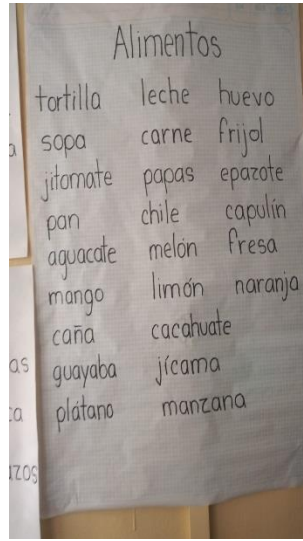 Alimentos
tortilla leche huevo
sopa carne frijol
jitomate papas epazote
pan chile capulín
aguacate melón fresa
mango limón naranja
caña cacahuate
guayaba jícama
plátano manzana